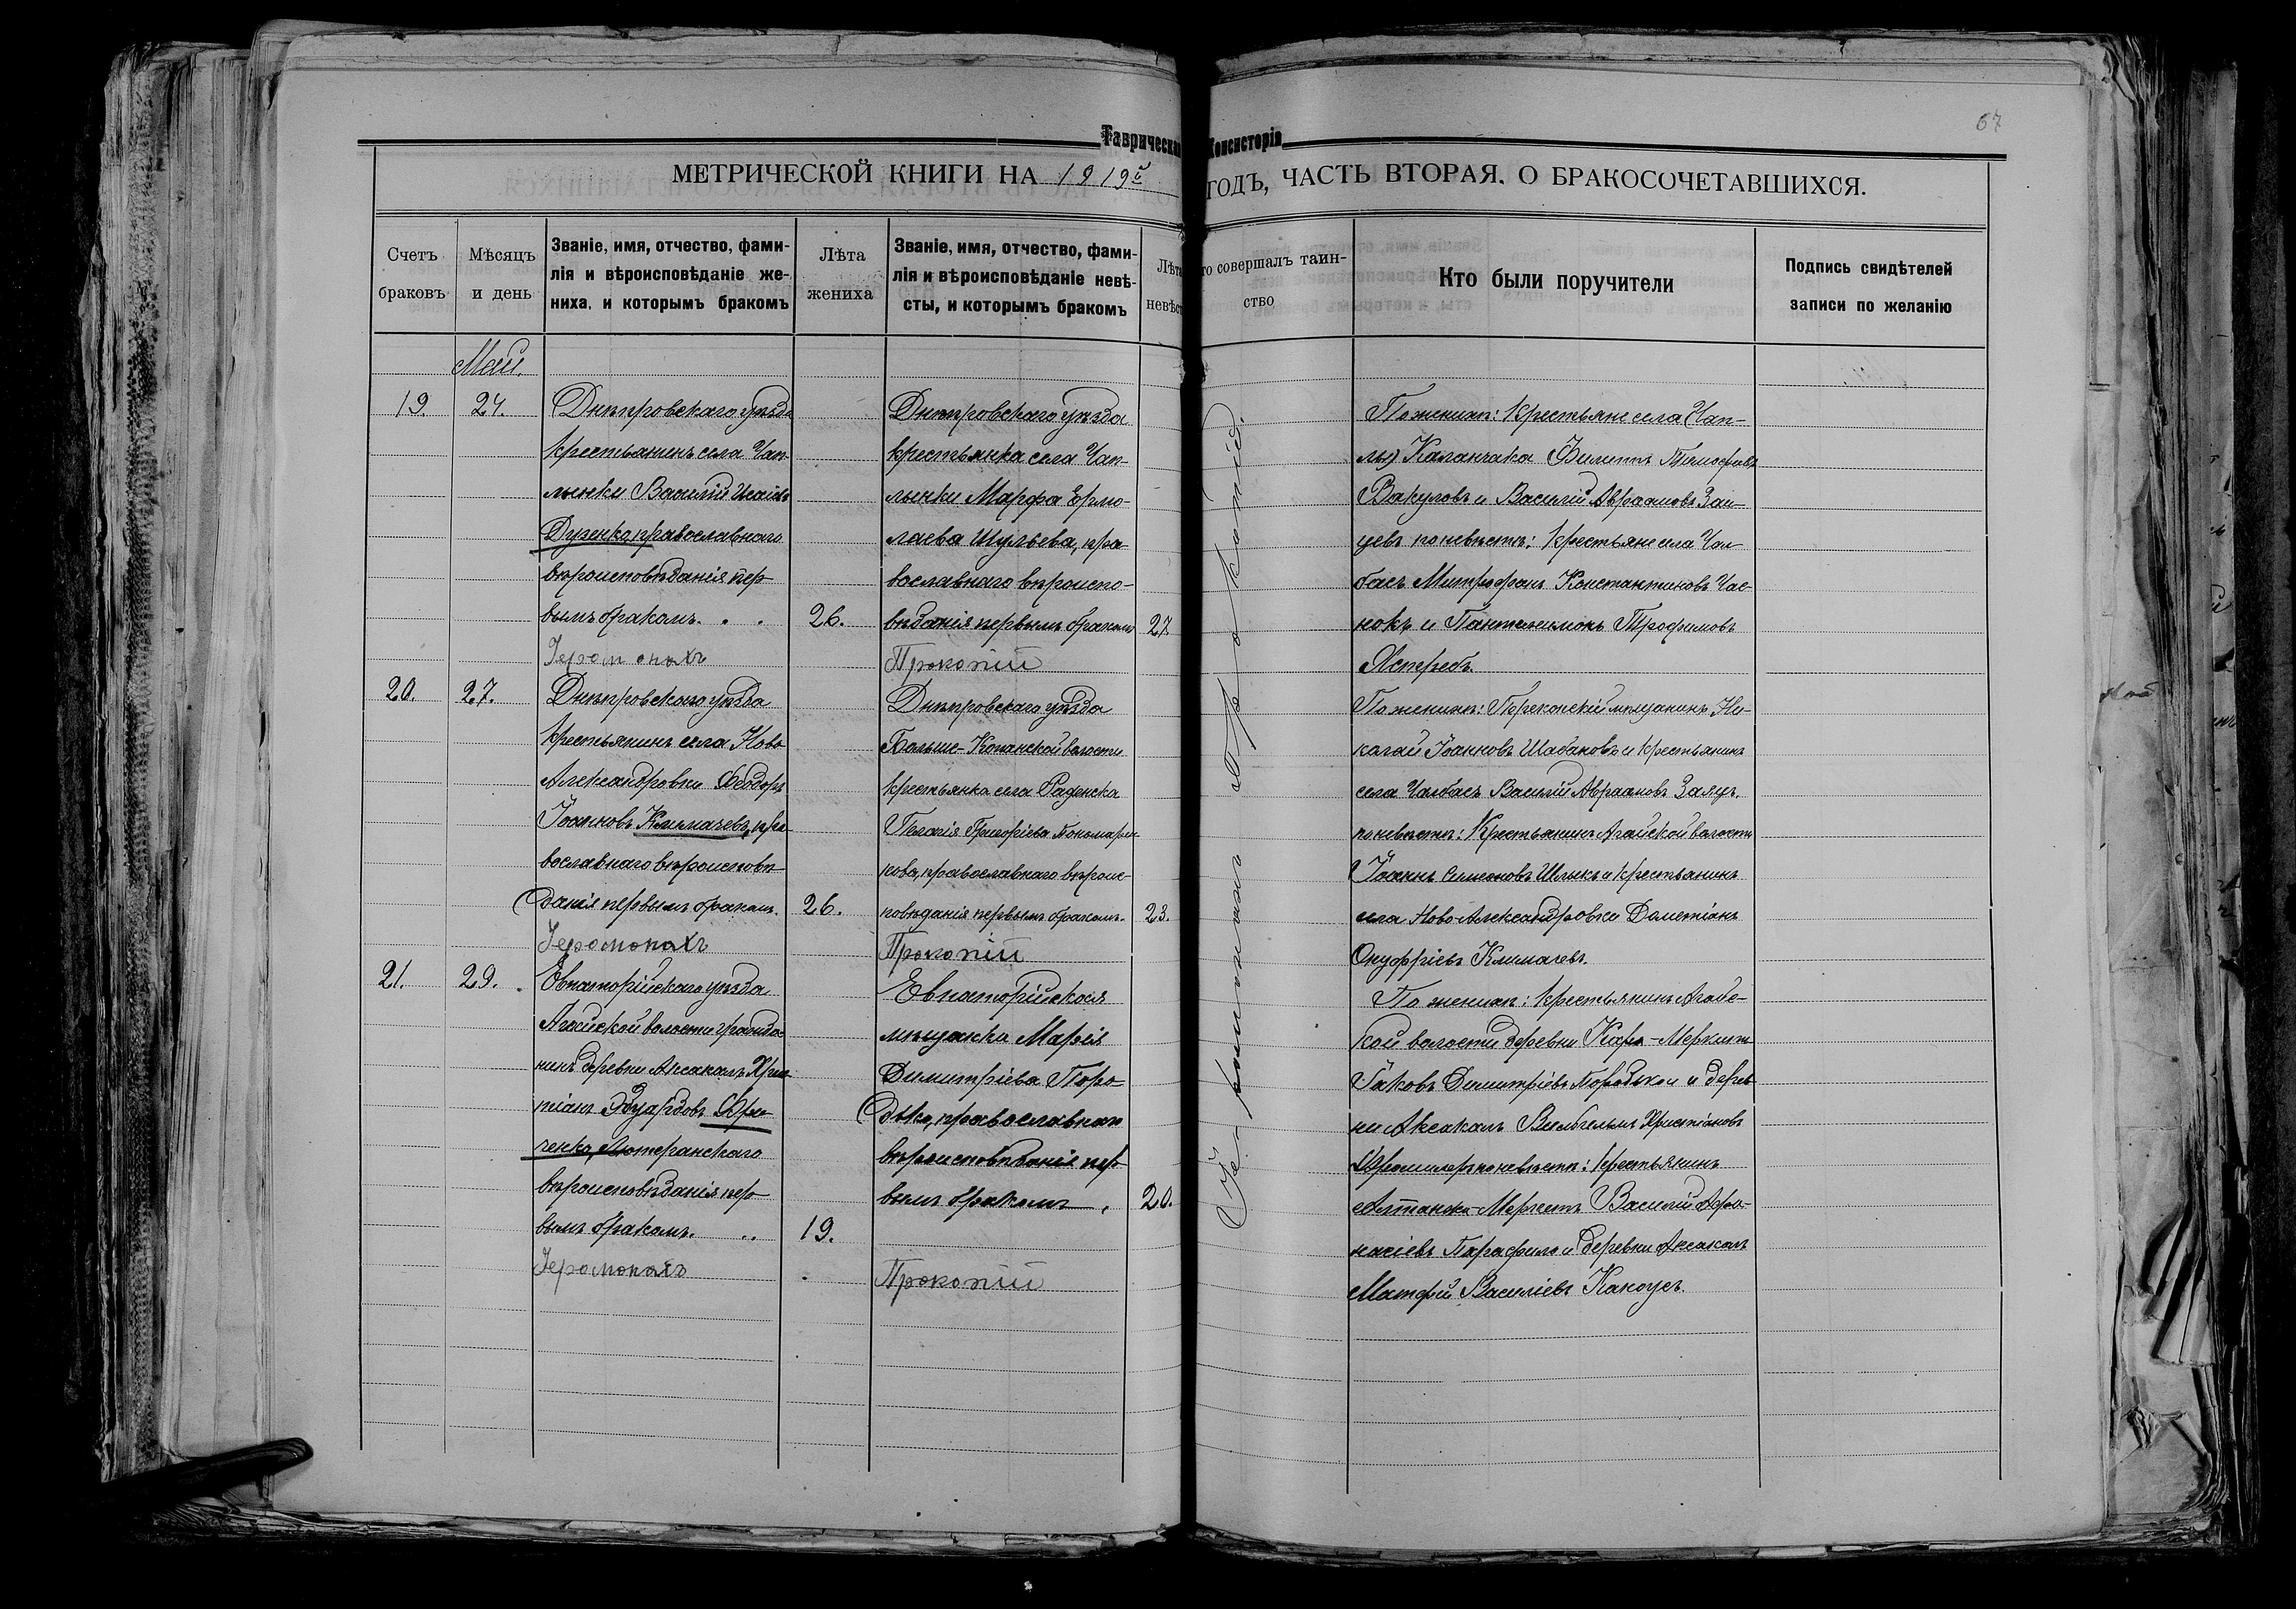 67
Таврической Консисторіи
МЕТРИЧЕСКОЙ КНИГИ НА 1919й ГОДЪ, ЧАСТЬ ВТОРАЯ. О БРАКОСОЧЕТАВШИХСЯ.
Счетъ браковъ
Мѣсяцъ и день
Званіе, имя, отчество, фами-
лія и вѣроисповѣданіе же-
ниха, и которымъ бракомъ
Лѣта жениха
Званіе, имя, отчество, фами-
лія и вѣроисповѣданіе невѣ-
сты, и которымъ бракомъ
Лѣта невѣст
то совершалъ таин-
ство
Кто были поручители
Подпись свидѣтелей
записи по желанію
Май.
19. 24.
Днѣпровскаго уѣзда
крестьянинъ села Чап-
лынки Василій Исаіевъ
Дузенко, православнаго
вѣроисповѣданія пер-
вымъ бракомъ. . .
26.
Іеромонахъ
Днѣпровскаго уѣзда
крестьянка села Чап-
лынки Марфа Ермо-
лаева Шульева, пра-
вославнаго вѣроиспо-
вѣданія первымъ бракомъ
27.
Прокопій
По женихѣ: крестьяне села (Чап-
лы) Каланчака Филиппъ Тимофеевъ
Вакуловъ и Василій Авраамовъ Заи-
цевъ по невѣстѣ: крестьяне села Чал-
басъ Митрофанъ Константиновъ Час-
нокъ и Пантелеимонъ Трофимовъ
Ястребъ.
20. 27.
Днѣпровскаго уѣзда
крестьянинъ села Ново
Александровки Ѳеодоръ
Іоанновъ Климачевъ, пра-
вославнаго вѣроисповѣ-
данія первымъ бракомъ.
26.
Іеромонахъ
Днѣпровскаго уѣзда
Больше-Копанской волости
крестьянка села Раденска
Пелагія Григоріева Пономарен-
кова, православнаго вѣроис-
повѣданія первымъ бракомъ.
23.
Прокопій
По женихѣ: Перекопскій мѣщанинъ Ни-
колай Іоанновъ Шабановъ и крестьянинъ
села Чалбасъ Василій Авраамовъ Заяцъ.
по невѣстѣ: Крестьянинъ Агайской волости
Іоаннъ Симеоновъ Шлыкъ и крестьянинъ
села Ново-Александровки Дометіанъ
Онуфріевъ Климачевъ.
21. 29.
Евпаторійскаго уѣзда
Агайской волости гражда-
нинъ деревни Аксакалъ Хрис-
тіанъ Эдуардовъ
Лютеранскаго
вѣроисповѣданія пер-
вымъ бракомъ. ..
19.
Іеромонахъ
Евпаторійская
мѣщанка Марія
Димитріева Поро-
дько, православнаго
вѣроисповѣданія пер-
вымъ бракомъ.
20.
Прокопій
По женихѣ: крестьянинъ Агайс-
кой волости деревни Кара-Меркитъ
Іаковъ Димитріевъ Породько и дерев-
ни Аксакалъ Вильгельмъ Христіановъ
по невѣстѣ: крестьянинъ
Василій Афа-
насіевъ Парафило и деревни Аксакалъ
Матфей Василіевъ
Іеромонахъ Прокопій.